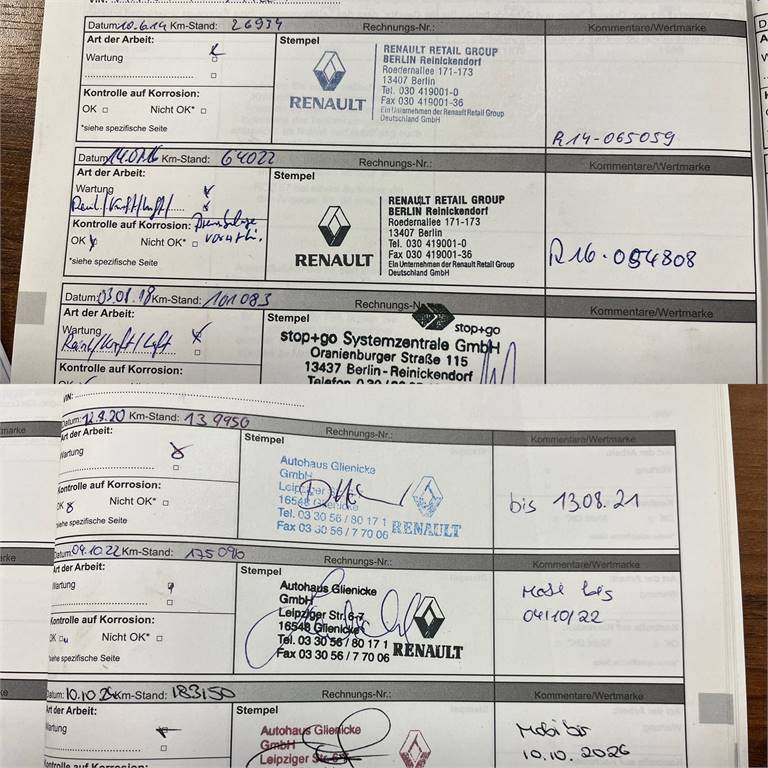 VIN:
Datum: 10.6.14 Km-Stand: 26934 Rechnungs-Nr.: Kommentare/Wertmarke
Art der Arbeit:
Wartung
Kontrolle auf Korrosion:
OK Nicht OK*
*siehe spezifische Seite
Stempel
RENAULT
RENAULT RETAIL GROUP
BERLIN Reinickendorf
Roedernallee 171-173
13407 Berlin
Tel. 030 419001-0
Fax 030 419001-36
Ein Unternehmen der Renault Retail Group
Deutschland GmbH
R14-065059
Datum: Km-Stand: 64022 Rechnungs-Nr.: Kommentare/Wertmarke
Art der Arbeit:
Wartung
Kontrolle auf Korrosion:
OK Nicht OK*
*siehe spezifische Seite
Stempel
RENAULT
RENAULT RETAIL GROUP
BERLIN Reinickendorf
Roedernallee 171-173
13407 Berlin
Tel. 030 419001-0
Fax 030 419001-36
Ein Unternehmen der Renault Retail Group
Deutschland GmbH
R16-054808
Datum: 03.08.18 Km-Stand: 101083 Rechnungs-N Kommentare/Wertmarke
Art der Arbeit:
Wartung
Kontrolle auf Korrosion:
OK
Stempel
stop+go
stop+go Systemzentrale GmbH
Oranienburger Straße 115
13437 Berlin - Reinickendorf
Telefon
VIN:
Datum: 12.9.20 Km-Stand: 139950 Rechnungs-Nr.: Kommentare/Wertmarke
Art der Arbeit:
Wartung
Kontrolle auf Korrosion:
OK Nicht OK*
siehe spezifische Seite
Stempel
Autohaus Glienicke
GmbH
Leipziger Str.
16548 Glienicke
Tel. 03 30 56 / 80 17 1
Fax 03 30 56 / 7 70 06
RENAULT
bis 13.08.21
Datum: 04.10.22 Km-Stand: 175090 Rechnungs-Nr.: Kommentare/Wertmarke
Art der Arbeit:
Wartung
Kontrolle auf Korrosion:
OK Nicht OK*
siehe spezifische Seite
Stempel
Autohaus Glienicke
GmbH
Leipziger Str. 6-7
16548 Glienicke
Tel. 03 30 56 / 80 17 1
Fax 03 30 56 / 7 70 06
RENAULT
Mobi bis
04/10/22
Datum: 10.10.24 Km-Stand: 183150 Rechnungs-Nr.: Kommentare/Wertmarke
Art der Arbeit:
Wartung
Kontrolle auf Korrosion:
Stempel
Autohaus Glienicke
GmbH
Leipziger Str. 6-7
Mobi bis
10.10.2026